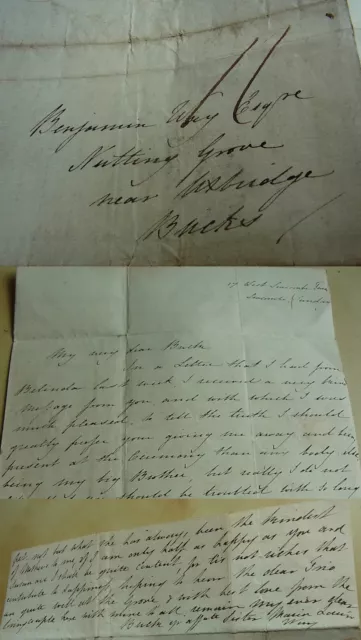 11
Benjamin Way Esqre
Nutting Grove
near Uxbridge
Bucks
17 West
My very dear Buck
In a Letter that I had from
Belinda last week I received a very kind
message from you and with which I was
much pleased, to tell the truth I should
greatly prefer your giving me away and being
present at the Ceremony than any body else
being my big Brother, but really I do not
should be troubled with so long
but what she has always been the kindest
of Mothers to me if I am only half as happy as you and
Susan are I shall be quite content for tis not riches that
contribute to happiness, hoping to hear the dear Trio
are quite well at the Grove & with best love from the
to all remain my ever dear
Buck yr affecte Sister Maria Louisa
Way